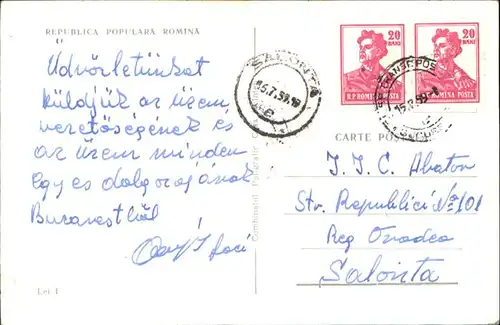 REPUBLICA POPULARA ROMINA
Üdvözletünket
küldjük az üzem
vezetőségének és
az üzem minden
egyes dolgozójának
Bucarestből
Laci
Lei 1
Combinatul Poligrafic
SALONTA
15.7.59.19
20
BANI
R.P.ROMINA POSTA
20
BANI
ROMINA POSTA
15.7.59
CARTE POS
I. I. C. Abator
Str. Republicii No 101
Reg Oradea
Salonta